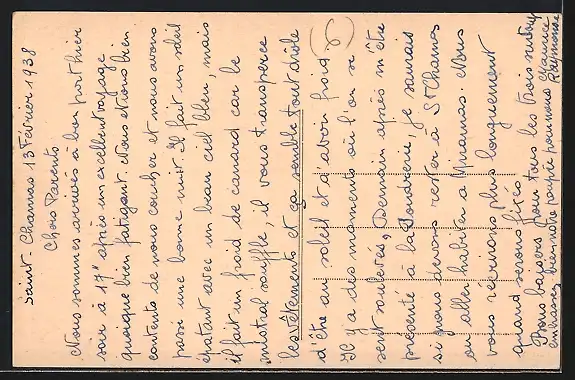 Saint-Chamas 13 Février 1938
Chers Parents
Nous sommes arrivés à bon port hier
soir à 17h après un excellent voyage
quoique bien fatigant. Nous étions bien
contents de nous coucher et nous avons
passé une bonne nuit. Il fait un soleil
épatant avec un beau ciel bleu, mais
il fait un froid de canard car le
mistral souffle, il vous transperce
les vêtements et ça semble tout drôle
d'être au soleil et d'avoir froid
Il y a des moments où l'on se
sent soulevés, Demain après m'être
présenté à la Poudrerie, je saurais
si nous devons rester à St Chamas
ou aller habiter à Miramas. Nous
vous écrirons plus longuement
quand serons fixés
Bons baisers pour tous les trois
Embrassez bien notre poupée pour nous
Maurice
Raymonde
6